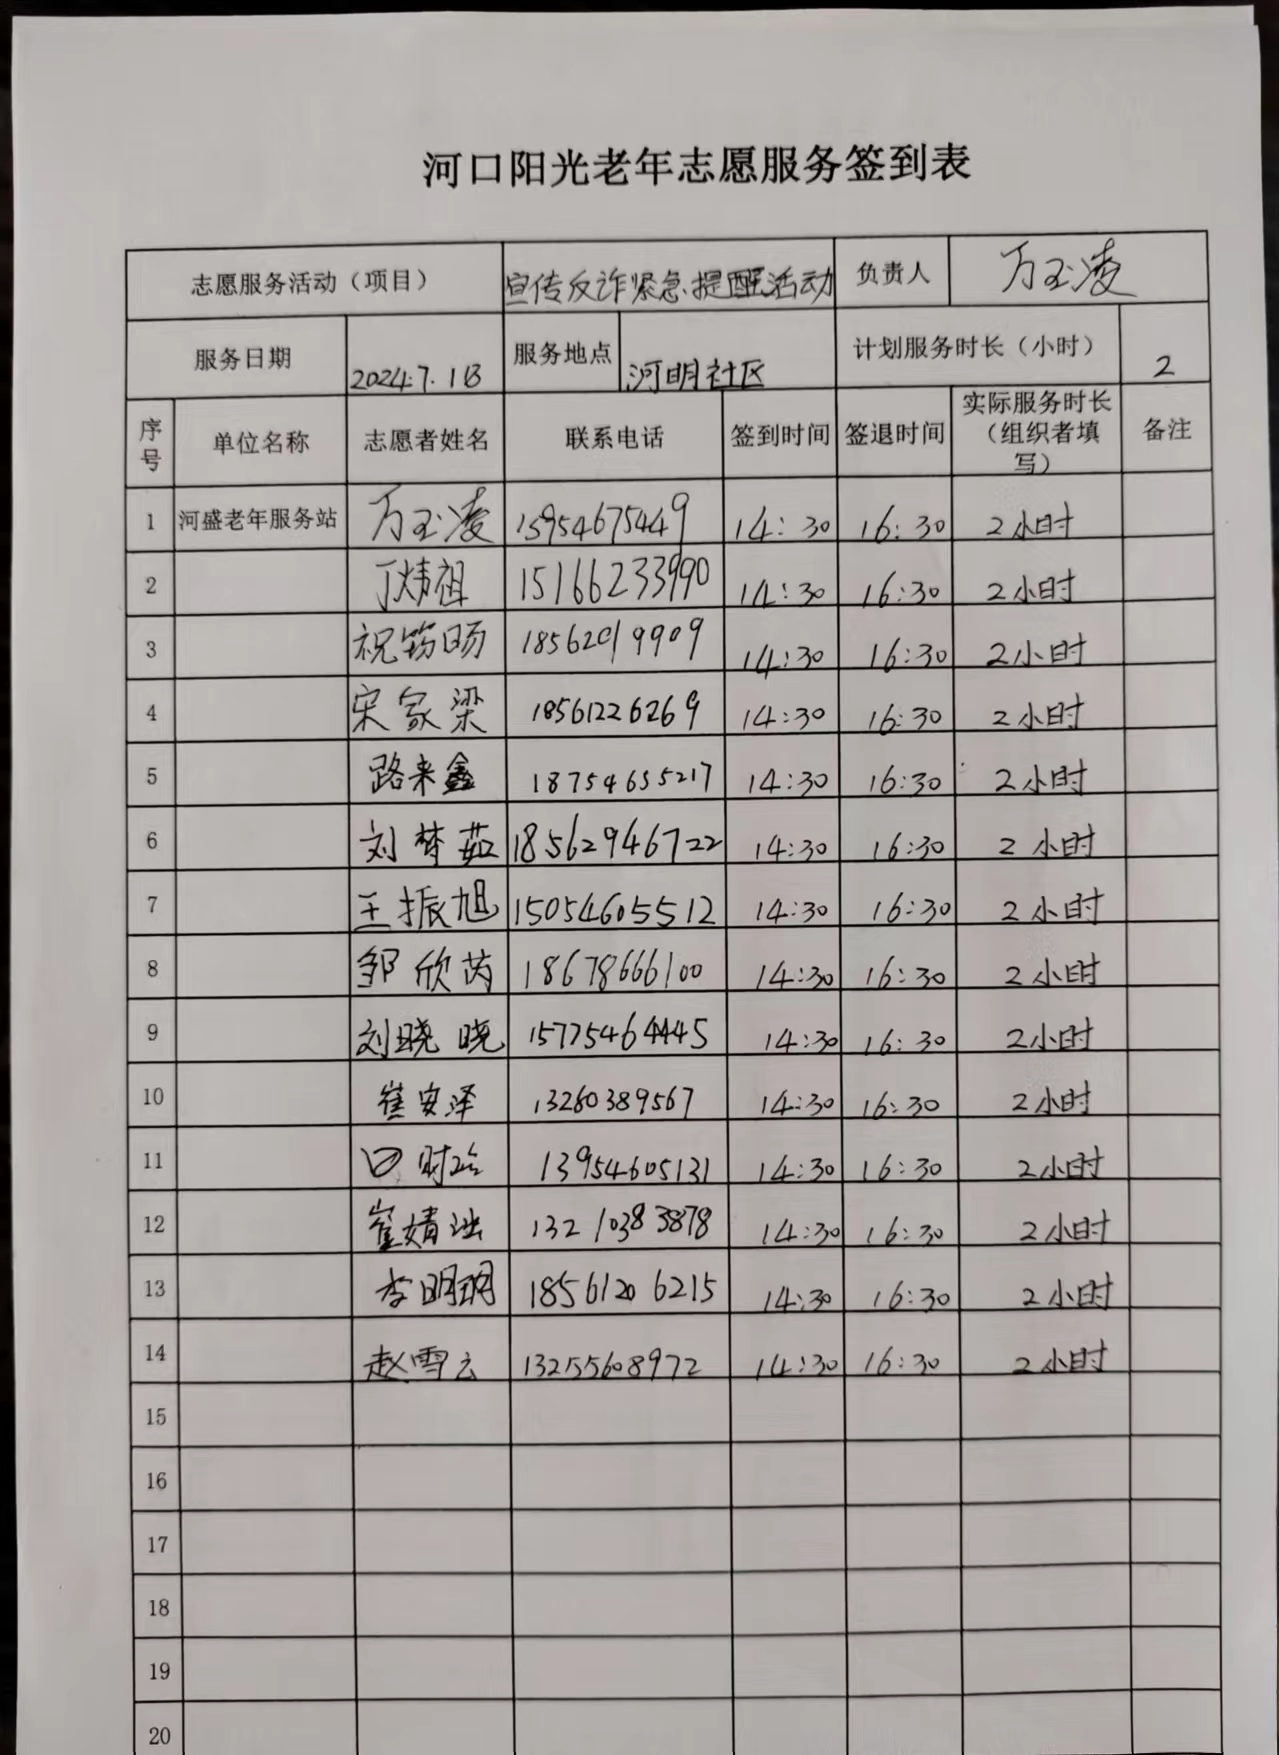 河口阳光老年志愿服务签到表
志愿服务活动（项目） 宣传反诈紧急提醒活动 负责人 万玉凌
服务日期 2024.7.1日 服务地点 河明社区 计划服务时长（小时） 2
序号 单位名称 志愿者姓名 联系电话 签到时间 签退时间 实际服务时长（组织者填写） 备注
1 河盛老年服务站 万玉凌 15954675449 14:30 16:30 2小时
2 丁炳祖 15166233990 14:30 16:30 2小时
3 祝筠旸 18562019909 14:30 16:30 2小时
4 宋家梁 18561226269 14:30 16:30 2小时
5 路来鑫 18754655217 14:30 16:30 2小时
6 刘梦茹 18562946722 14:30 16:30 2小时
7 王振旭 15054605512 14:30 16:30 2小时
8 邹欣芮 18678666100 14:30 16:30 2小时
9 刘晓晓 15775464445 14:30 16:30 2小时
10 崔安泽 13280389567 14:30 16:30 2小时
11 13954605131 14:30 16:30 2小时
12 崔婧 13210383878 14:30 16:30 2小时
13 李明玥 18561206215 14:30 16:30 2小时
14 赵雪云 13255608972 14:30 16:30 2小时
15
16
17
18
19
20